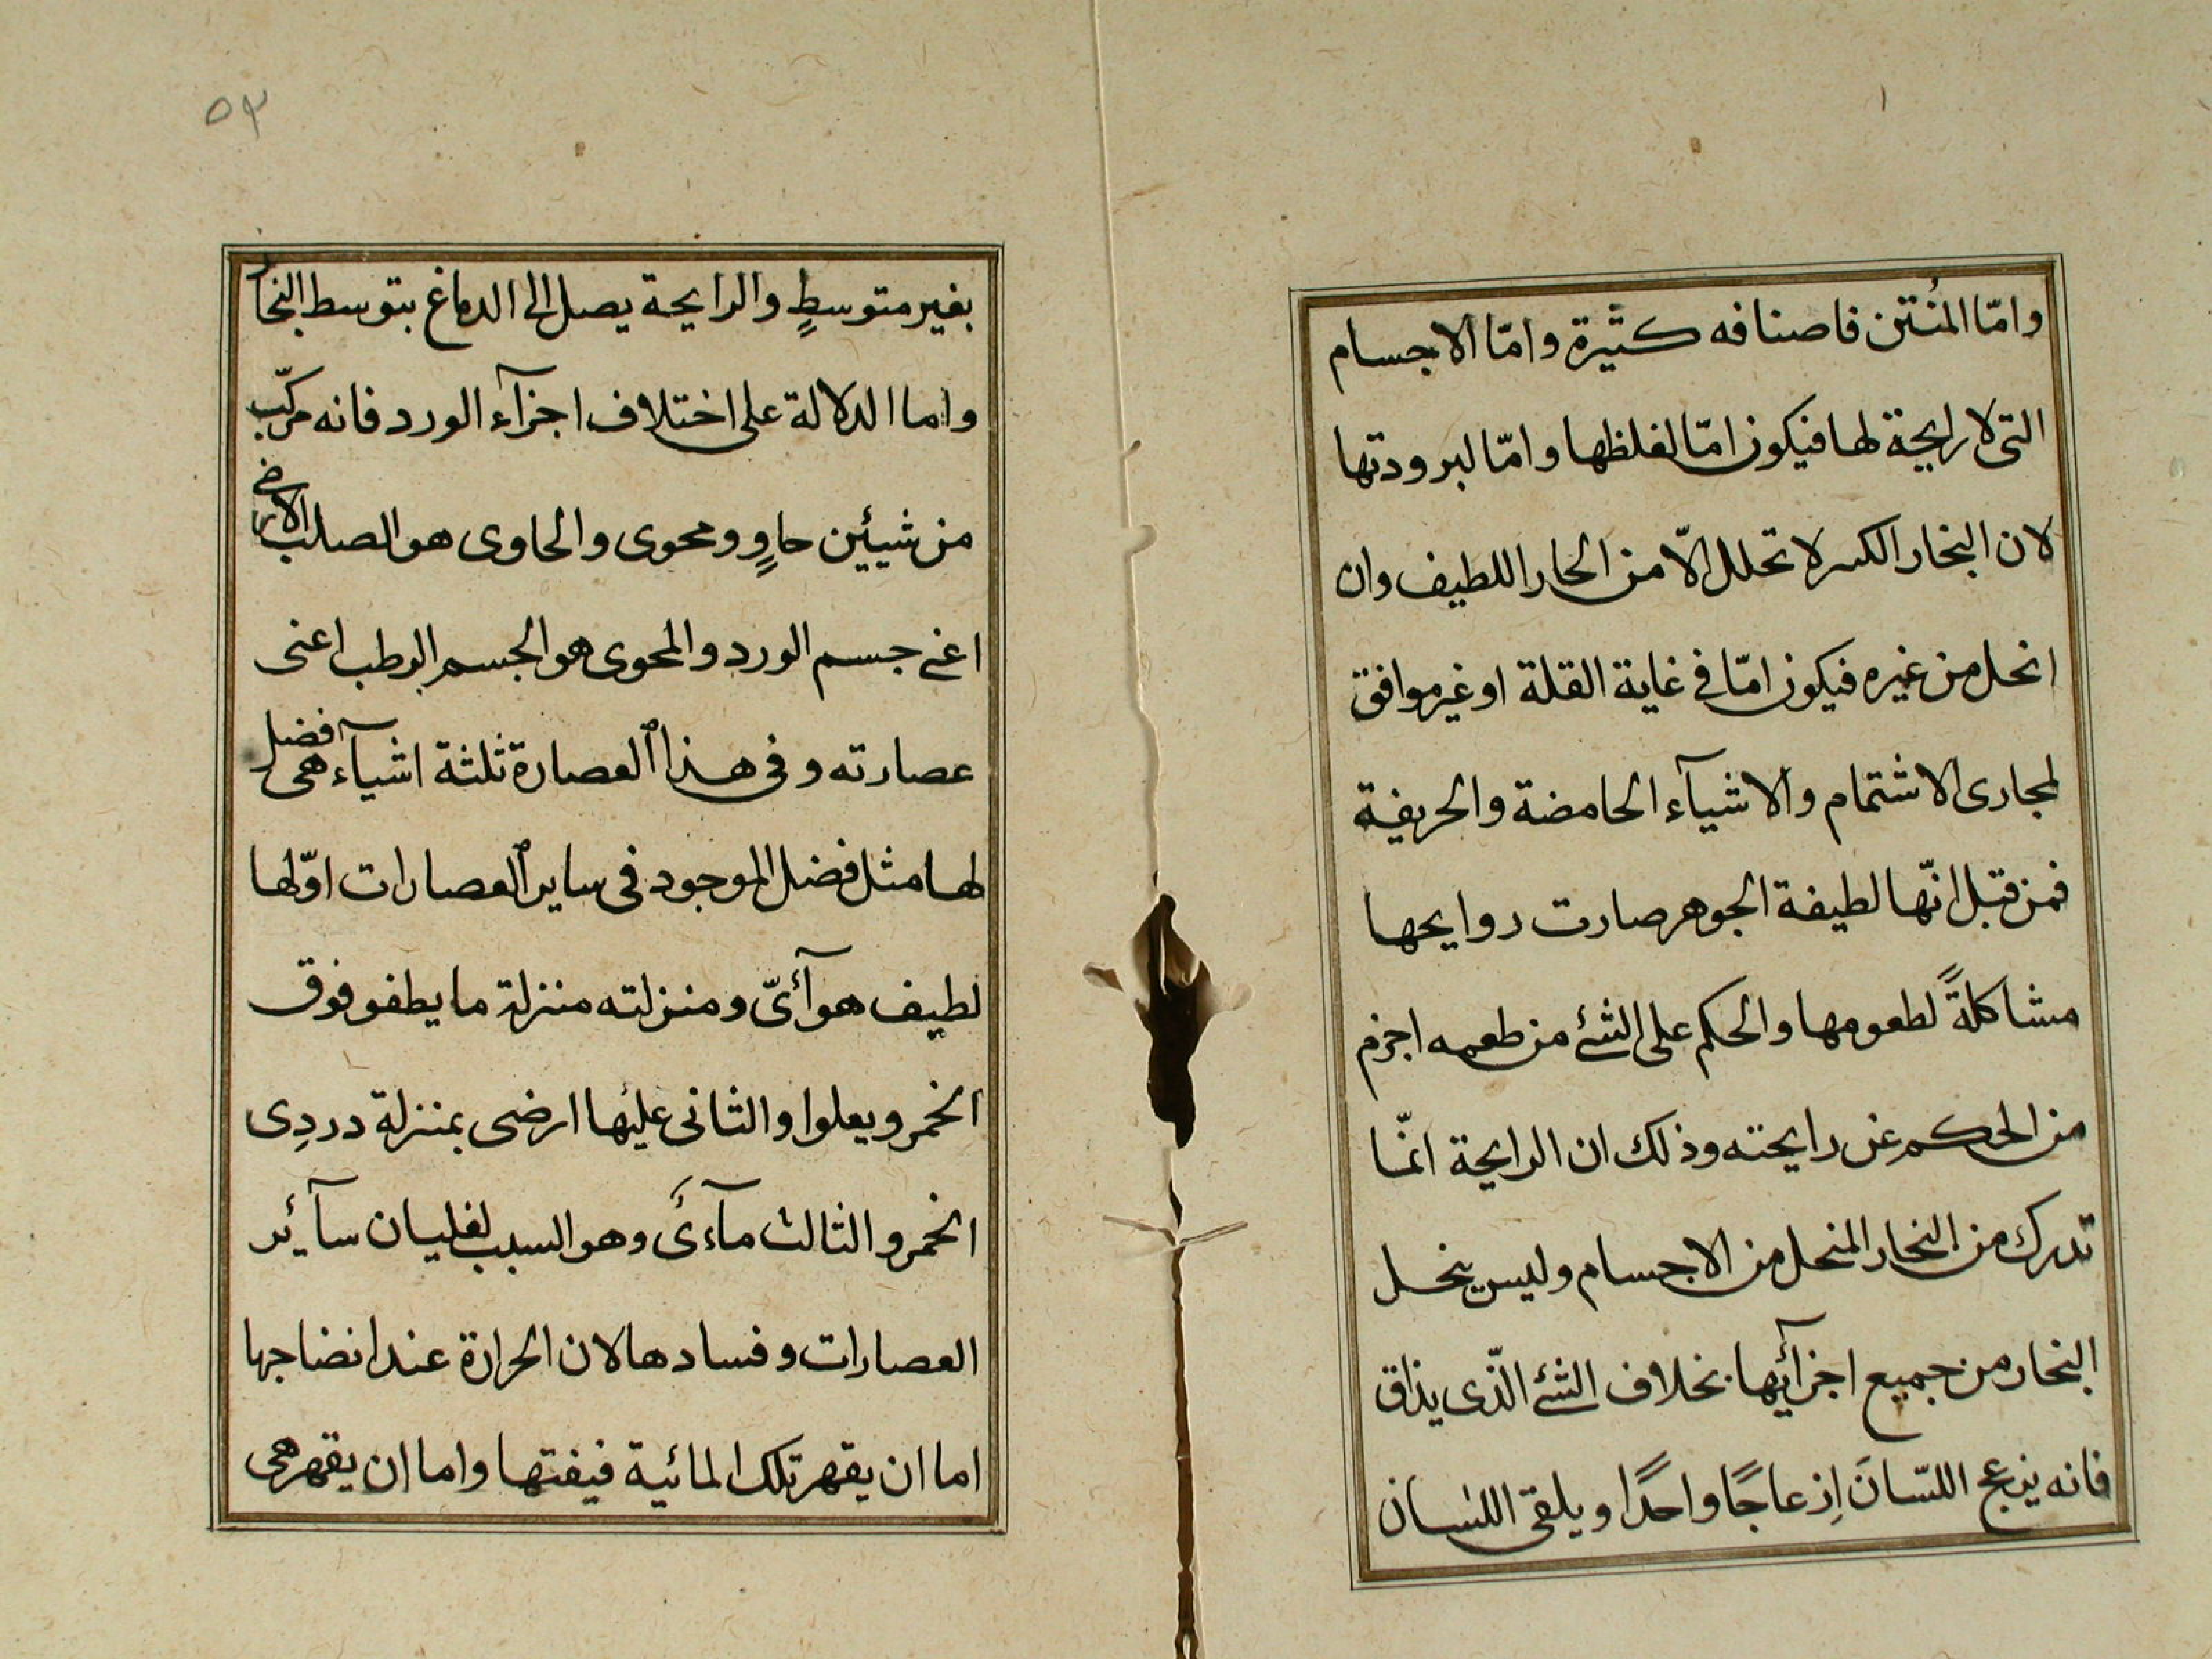 وامّا المُنتن فاصنافه كثيرة وامّا الاجسام
التى لا رايحة لها فيكون امّا لغلظها وامّا لبرودتها
لان البخار الكىىر لا تحلل الّا من الحار اللطيف وان
انحل من غيره فيكون امّا فى غاية القلة او غير موافق
لمجارى الاشتمام والاشيآء الحامضة والحريفة
فمن قبل انّها لطيفة الجوهر صارت روايحها
مشاكلةً لطعومها والحكم على الشئ من طعمه اجزم
من الحكم عن رايحته وذلك ان الرايحة انمّا
تدرك من البخار المنحل من الاجسام وليس ينحل
البخار من جميع اجزآئها بخلاف الشئ الّذى يذاق
فانه يزعج اللسّانَ اِزعاجًا واحدًا ويلقى اللسان
٥٣
بغير متوسطٍ والرايحة يصل الى الدماغ بتوسط البخار
واما الدلالة على اختلاف اجزآء الورد فانه مركّب
من شيئين حاوٍ ومحوى والحاوى هو الصلب الارضى
اعنى جسم الورد والمحوى هو الجسم الرطب اعنى
عصارته وفى هذا العصارة ثلثة اشيآء هى فضل
لها مثل فضل الموجود فى ساير العصارات اوّلها
لطيف هوآئىّ ومنزلته منزلة ما يطفو فوق
الخمر ويعلوا والثانى عليها ارضى بمنزلة دردِى
الخمر والثالث مآءىً وهو السبب لغليان سآئر
العصارات وفسادها لان الحرارة عند انضاجها
اما ان يقهر تلك المائية فيفتها واما ان يقهر هى